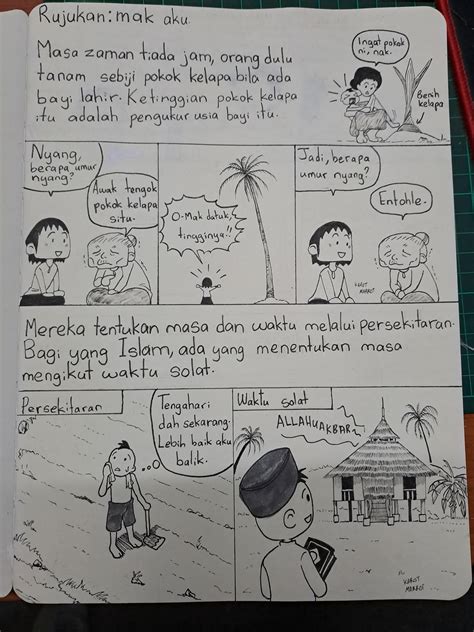 Rujukan: mak aku.
Masa zaman tiada jam, orang dulu
tanam sebiji pokok kelapa bila ada
bayi lahir. Ketinggian pokok kelapa
itu adalah pengukur usia bayi itu.
Ingat pokok
ni, nak.
Benih
kelapa
Nyang,
berapa umur
nyang?
Awak tengok
pokok kelapa
situ.
O-Mak datuk,
tingginya!!
Jadi, berapa
umur nyang?
Entohle.
KAROT
MARROT
Mereka tentukan masa dan waktu melalui persekitaran.
Bagi yang Islam, ada yang menentukan masa
mengikut waktu solat.
Persekitaran
Tengahari
dah sekarang.
Lebih baik aku
balik.
Waktu solat
ALLAHUAKBAR
KAROT
MARROT